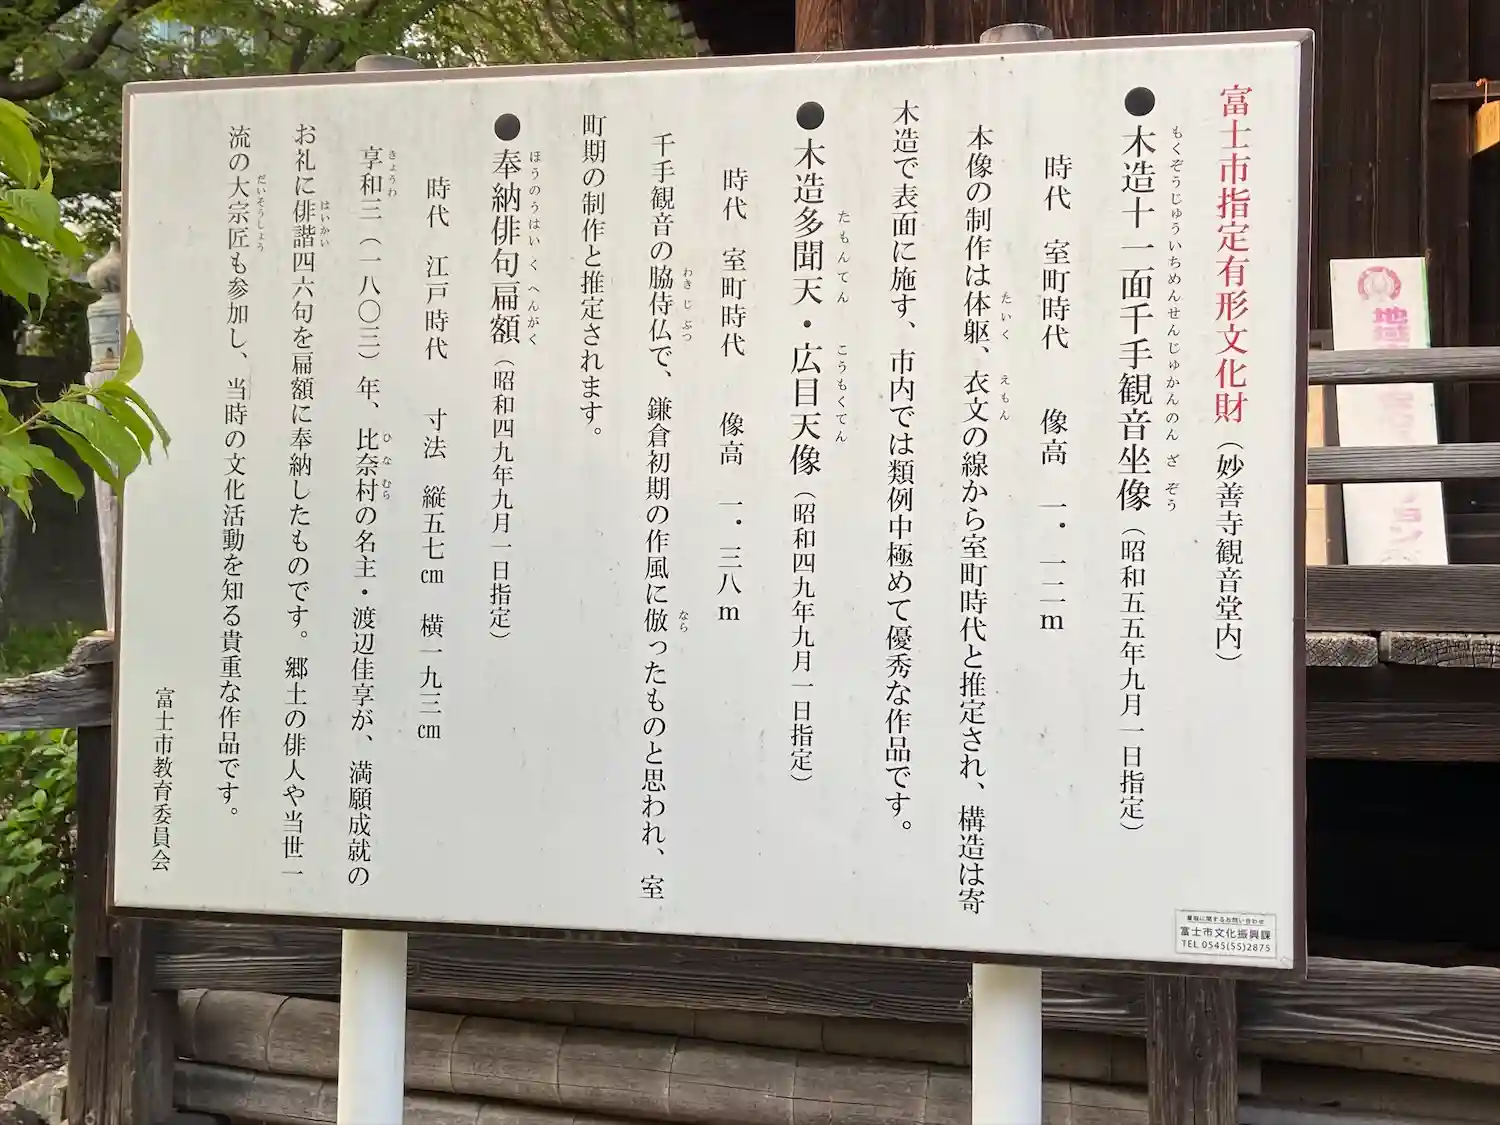 富士市指定有形文化財（妙善寺観音堂内）
●木造十一面千手観音坐像（昭和五五年九月一日指定）
もくぞうじゅういちめんせんじゅかんのんざぞう
時代　室町時代　像高　一・一二m
本像の制作は体躯、衣文の線から室町時代と推定され、構造は寄
たいく　えもん
木造で表面に施す、市内では類例中極めて優秀な作品です。
●木造多聞天・広目天像（昭和四九年九月一日指定）
たもんてん　こうもくてん
時代　室町時代　像高　一・三八m
千手観音の脇侍仏で、鎌倉初期の作風に倣ったものと思われ、室
わきじぶつ　なら
町期の制作と推定されます。
●奉納俳句扁額（昭和四九年九月一日指定）
ほうのうはいくへんがく
時代　江戸時代　寸法　縦五七㎝　横一九三㎝
享和三（一八〇三）年、比奈村の名主・渡辺佳享が、満願成就の
きょうわ　ひなむら
お礼に俳諧四六句を扁額に奉納したものです。郷土の俳人や当世一
はいかい
流の大宗匠も参加し、当時の文化活動を知る貴重な作品です。
だいそうしょう
富士市教育委員会
看板に関するお問い合わせ
富士市文化振興課
TEL 0545(55)2875
地域
ョン